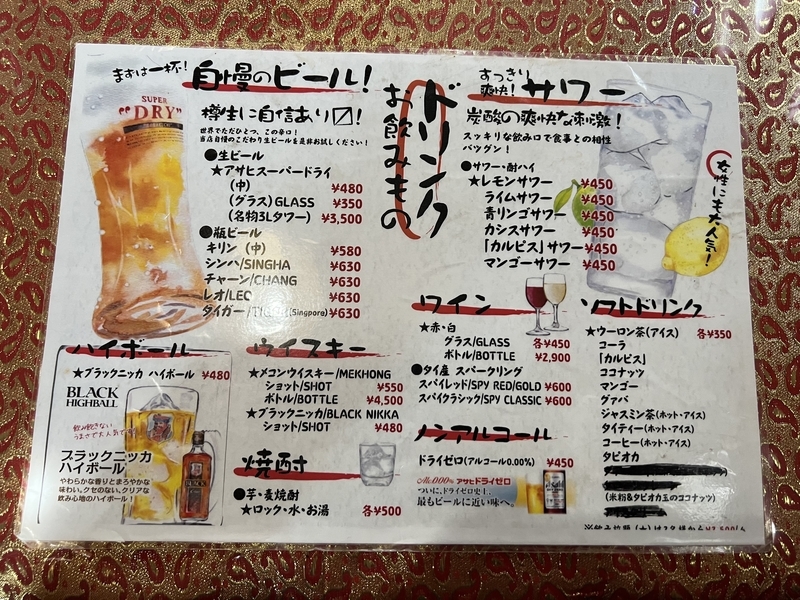 まずは一杯!
自慢のビール!
SUPER
"DRY"
樽生に自信あり〼!
世界でただひとつ、この辛口!
当店自慢のこだわり生ビールを是非お試しください!
●生ビール
★アサヒスーパードライ
(中) ¥480
(グラス)GLASS ¥350
(名物3Lタワー) ¥3,500
●瓶ビール
キリン (中) ¥580
シンハ/SINGHA ¥630
チャーン/CHANG ¥630
レオ/LEO ¥630
タイガー/TIGER(Singpore) ¥630
ドリンク
お飲みもの
すっきり爽快!
サワー
炭酸の爽快な刺激!
スッキリな飲み口で食事との相性
バツグン!
●サワー・酎ハイ
★レモンサワー ¥450
ライムサワー ¥450
青リンゴサワー ¥450
カシスサワー ¥450
「カルピス」サワー ¥450
マンゴーサワー ¥450
女性にも大人気!
ハイボール
★ブラックニッカ ハイボール ¥480
BLACK
HIGHBALL
ブラックニッカ
ハイボール
やわらかな香りとまろやかな
味わい。クセのない、クリアな
飲み心地のハイボール!
BLACK
ウイスキー
★メコンウイスキー/MEKHONG
ショット/SHOT ¥550
ボトル/BOTTLE ¥4,500
★ブラックニッカ/BLACK NIKKA
ショット/SHOT ¥480
焼酎
●芋・麦焼酎
★ロック・水・お湯 各¥500
ワイン
★赤・白
グラス/GLASS 各¥450
ボトル/BOTTLE ¥2,900
●タイ産 スパークリング
スパイレッド/SPY RED/GOLD ¥600
スパイクラシック/SPY CLASSIC ¥600
ノンアルコール
ドライゼロ(アルコール0.00%) ¥450
Alc.0.00% アサヒドライゼロ
ついに、ドライゼロ史上、
最もビールに近い味へ。
Asahi
ソフトドリンク
★ウーロン茶(アイス) 各¥350
コーラ
「カルピス」
ココナッツ
マンゴー
グァバ
ジャスミン茶(ホット・アイス)
タイティー(ホット・アイス)
コーヒー(ホット・アイス)
タピオカ
(米粉&タピオカ玉のココナッツ)